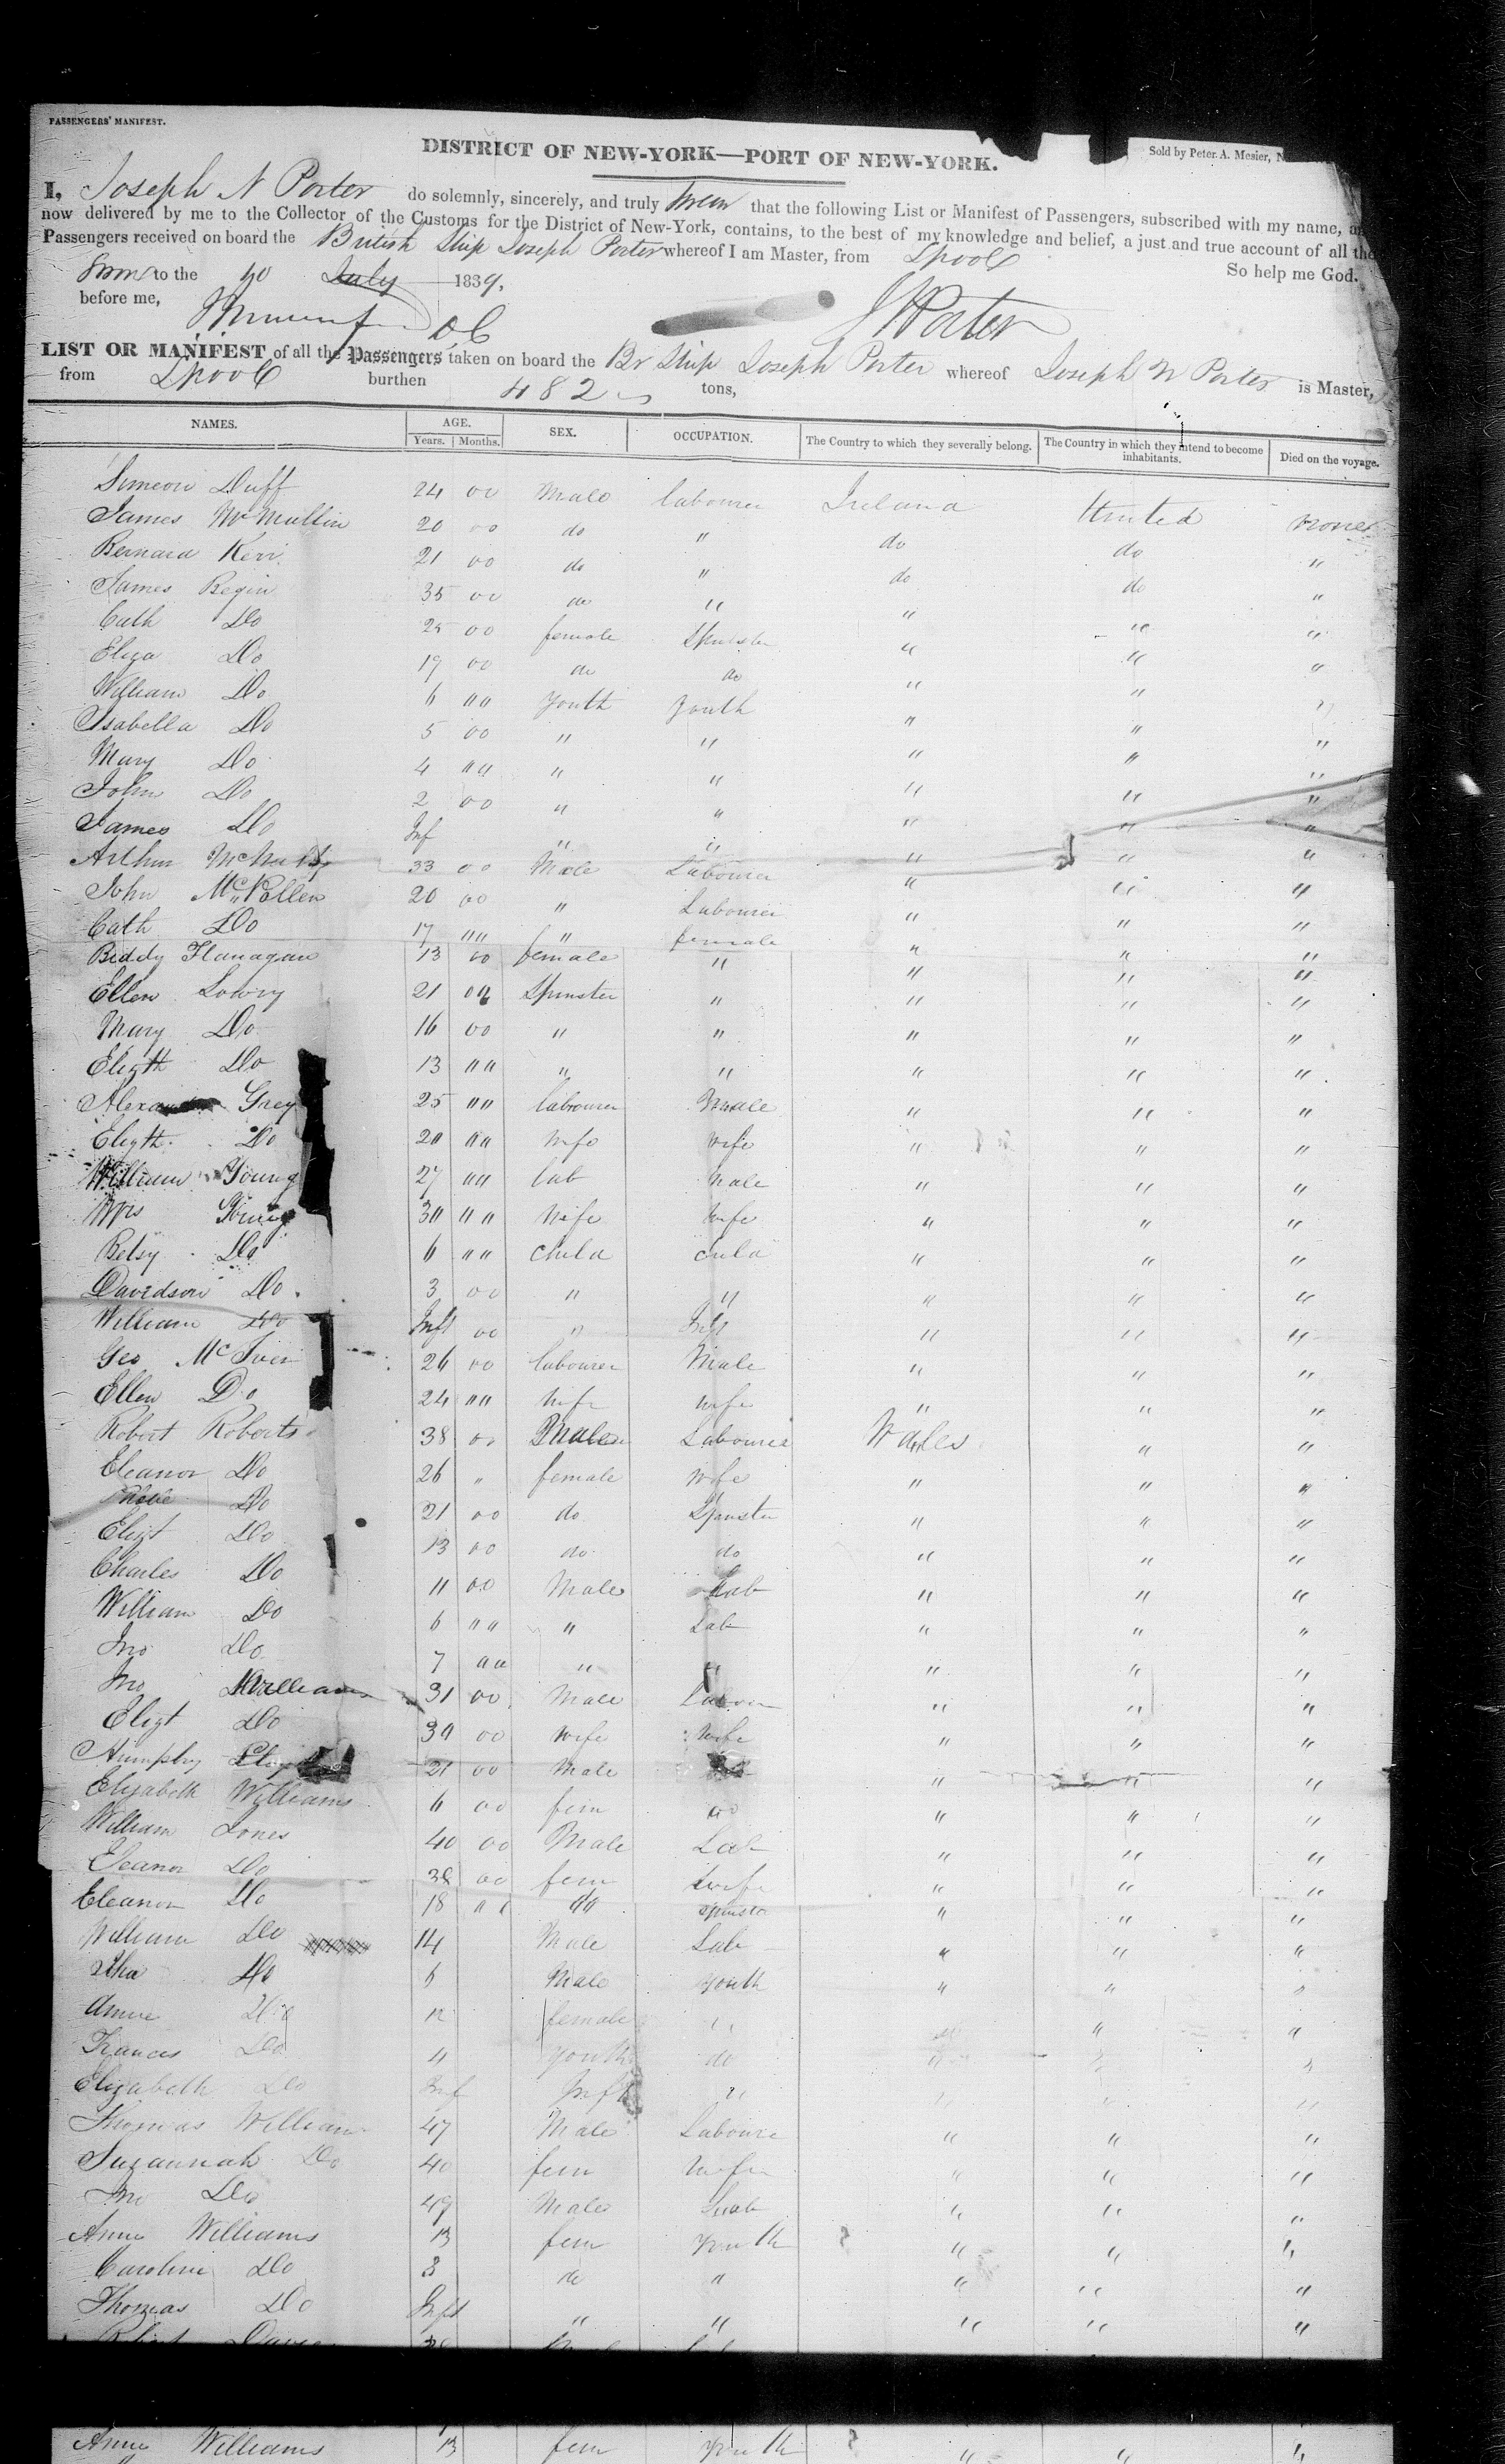 PASSENGERS' MANIFEST.
DISTRICT OF NEW-YORK—PORT OF NEW-YORK.
Sold by Peter A. Mesier, N
I, Joseph N Porter do solemnly, sincerely, and truly that the following List or Manifest of Passengers, subscribed with my name,
now delivered by me to the Collector of the Customs for the District of New-York, contains, to the best of my knowledge and belief, a just and true account of all the
Passengers received on board the British Ship Joseph Porter whereof I am Master, from Lpool
So help me God.
to the 10 July 1839.
before me,
J N Porter
LIST OR MANIFEST of all the Passengers taken on board the Br Ship Joseph Porter whereof Joseph N Porter is Master,
from Lpool burthen 482 tons,
NAMES. AGE. Years. Months. SEX. OCCUPATION. The Country to which they severally belong. The Country in which they intend to become inhabitants. Died on the voyage.
Simeon Duff 24 00 Male labourer Ireland United none
James McMullin 20 00 do " do do "
Bernard Kerr 21 00 do " do do "
James Regin 35 00 do " " " "
Cath Do 25 00 female Spinster " " "
Eliza Do 19 00 do do " " "
William Do 6 " youth youth " " "
Isabella Do 5 00 " " " " "
Mary Do 4 " " " " " "
John Do 2 00 " " " " "
James Do Inf " " " " "
Arthur 33 00 Male Labourer " " "
John McPollen 20 00 " Labourer " " "
Cath Do 17 " " female " " "
Biddy Flanagan 13 00 female " " " "
Ellen Lowry 21 00 Spinster " " " "
Mary Do 16 00 " " " " "
Elizth Do 13 " " " " " "
Grey 25 " labourer Male " " "
Elizth Do 20 " wife wife " " "
William Young 27 " lab Male " " "
Mrs Young 30 " wife wife " " "
Betsy Do 6 " child child " " "
Davidson Do 3 00 " " " " "
William Do Inft 00 " Inft " " "
Geo McIver 26 00 labourer Male " " "
Ellen Do 24 " wife wife " " "
Robert Roberts 38 00 Male Labourer Wales " "
Eleanor Do 26 " female wife " " "
Do 21 00 do Spinster " " "
Elizt Do 13 00 do do " " "
Charles Do 11 00 Male Lab " " "
William Do 6 " " Lab " " "
Jno Do 7 " " " " " "
Jno Williams 31 00 Male Labour " " "
Elizt Do 30 00 wife wife " " "
Humphry 21 00 Male " " "
Elizabeth Williams 6 00 fem do " " "
William Jones 40 00 Male Lab " " "
Eleanor Do 38 00 fem wife " " "
Eleanor Do 18 " do spinster " " "
William Do 14 Male Lab " " "
Do 6 Male youth " " "
Anne Do 12 female " " " "
Frances Do 4 youth do " " "
Elizabeth Do Inf Inft " " " "
Thomas Williams 47 Male Laboure " " "
Suzannah Do 40 fem wife " " "
Jno Do 49 Male Lab " " "
Anne Williams 13 fem youth " " "
Caroline Do 3 do " " " "
Thomas Do Inft " " " " "
Anne Williams 13 fem youth " " "